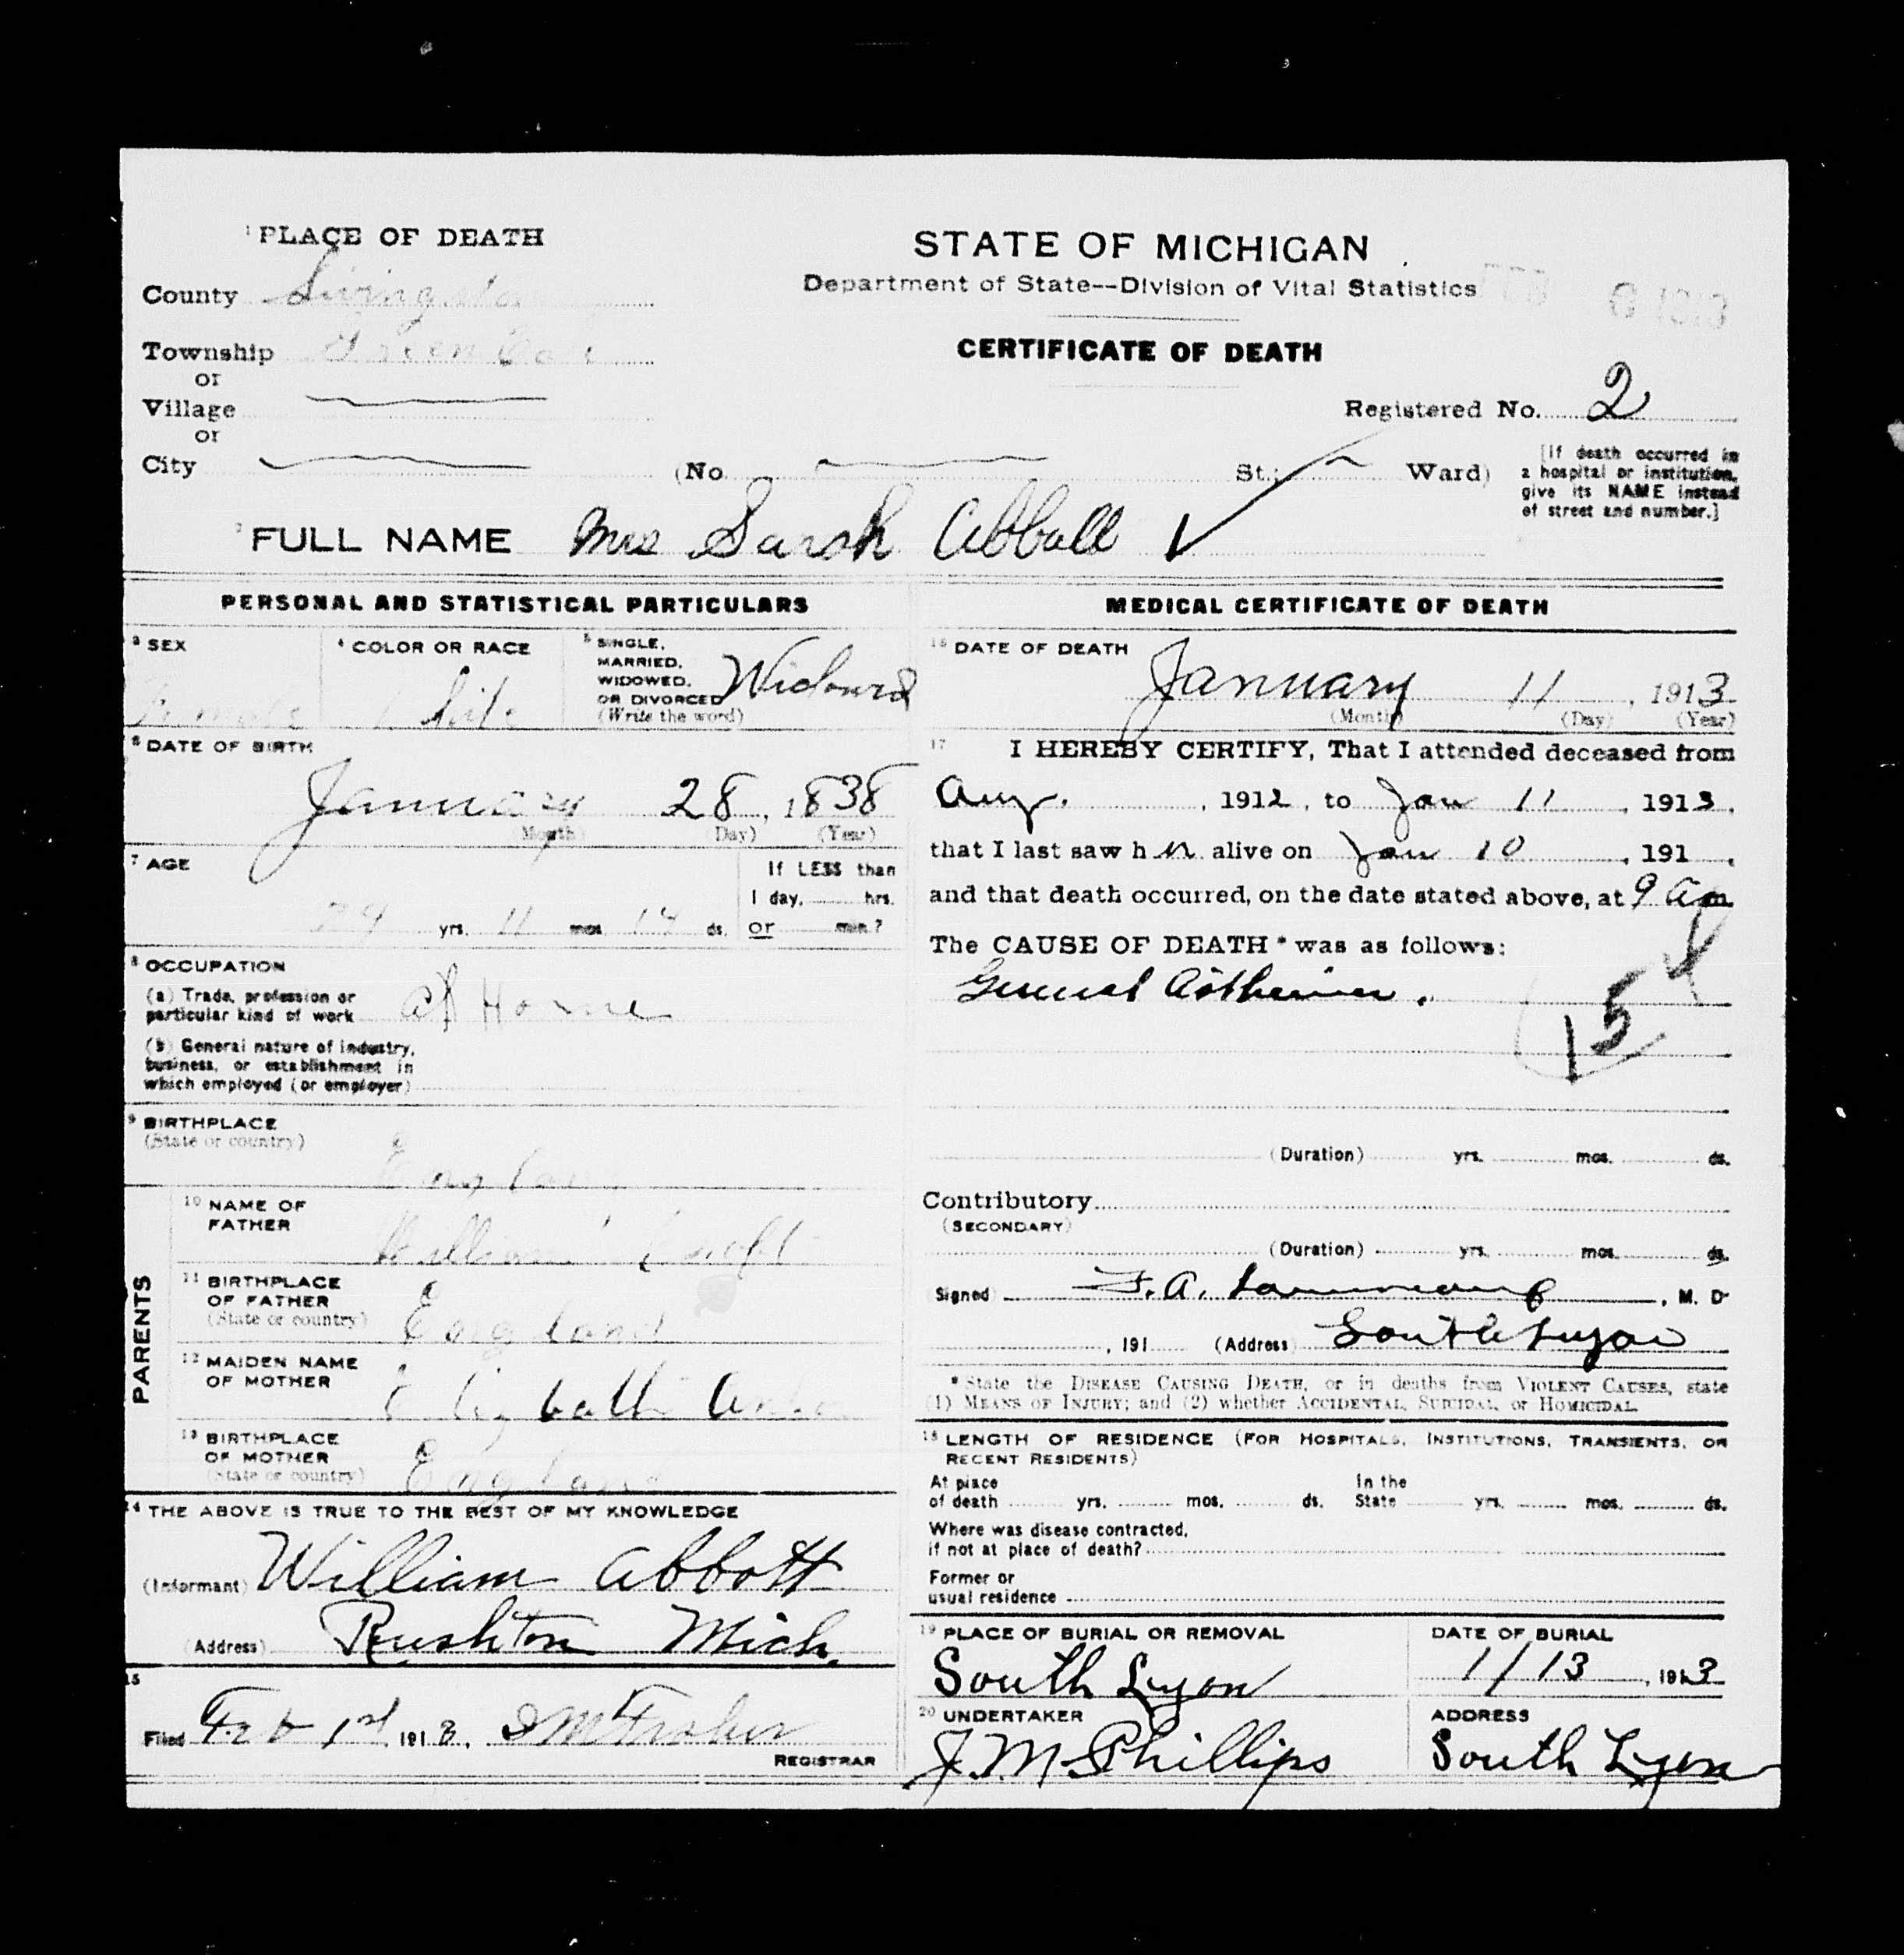 1 PLACE OF DEATH
County Livingston
Township Green Oak
or
Village
or
City (No. St.; Ward)
STATE OF MICHIGAN
Department of State--Division of Vital Statistics
FEB 6 1913
CERTIFICATE OF DEATH
Registered No. 2
[If death occurred in
a hospital or institution,
give its NAME instead
of street and number.]
2 FULL NAME Mrs Sarah Abbott
PERSONAL AND STATISTICAL PARTICULARS
3 SEX
Female
4 COLOR OR RACE
White
5 SINGLE,
MARRIED,
WIDOWED,
OR DIVORCED Widowed
(Write the word)
6 DATE OF BIRTH
January 28, 1838
(Month) (Day) (Year)
7 AGE
yrs. 11 mos. 14 ds.
If LESS than
1 day, hrs.
or min.?
8 OCCUPATION
(a) Trade, profession or
particular kind of work At Home
(b) General nature of industry,
business, or establishment in
which employed (or employer)
9 BIRTHPLACE
(State or country)
England
PARENTS
10 NAME OF
FATHER
William
11 BIRTHPLACE
OF FATHER
(State or country) England
12 MAIDEN NAME
OF MOTHER
Elizbath
13 BIRTHPLACE
OF MOTHER
(State or country) England
14 THE ABOVE IS TRUE TO THE BEST OF MY KNOWLEDGE
(Informant) William Abbott
(Address) Rushton Mich.
15
Filed Feb 1st 1913,
REGISTRAR
MEDICAL CERTIFICATE OF DEATH
16 DATE OF DEATH
January 11, 1913
(Month) (Day) (Year)
17 I HEREBY CERTIFY, That I attended deceased from
Aug. , 1912, to Jan 11, 1913,
that I last saw her alive on Jan 10, 191 ,
and that death occurred, on the date stated above, at 9 am.
The CAUSE OF DEATH * was as follows:
General Asthenia.
154
(Duration) yrs. mos. ds.
Contributory
(SECONDARY)
(Duration) yrs. mos. ds.
Signed F. A. , M. D.
, 191 (Address) South Lyon
* State the DISEASE CAUSING DEATH, or in deaths from VIOLENT CAUSES, state
(1) MEANS OF INJURY; and (2) whether ACCIDENTAL, SUICIDAL, or HOMICIDAL.
18 LENGTH OF RESIDENCE (FOR HOSPITALS, INSTITUTIONS, TRANSIENTS, OR
RECENT RESIDENTS)
At place
of death yrs. mos. ds. In the
State yrs. mos. ds.
Where was disease contracted,
if not at place of death?
Former or
usual residence
19 PLACE OF BURIAL OR REMOVAL
South Lyon
DATE OF BURIAL
1/13, 1913
20 UNDERTAKER
J. M. Phillips
ADDRESS
South Lyon